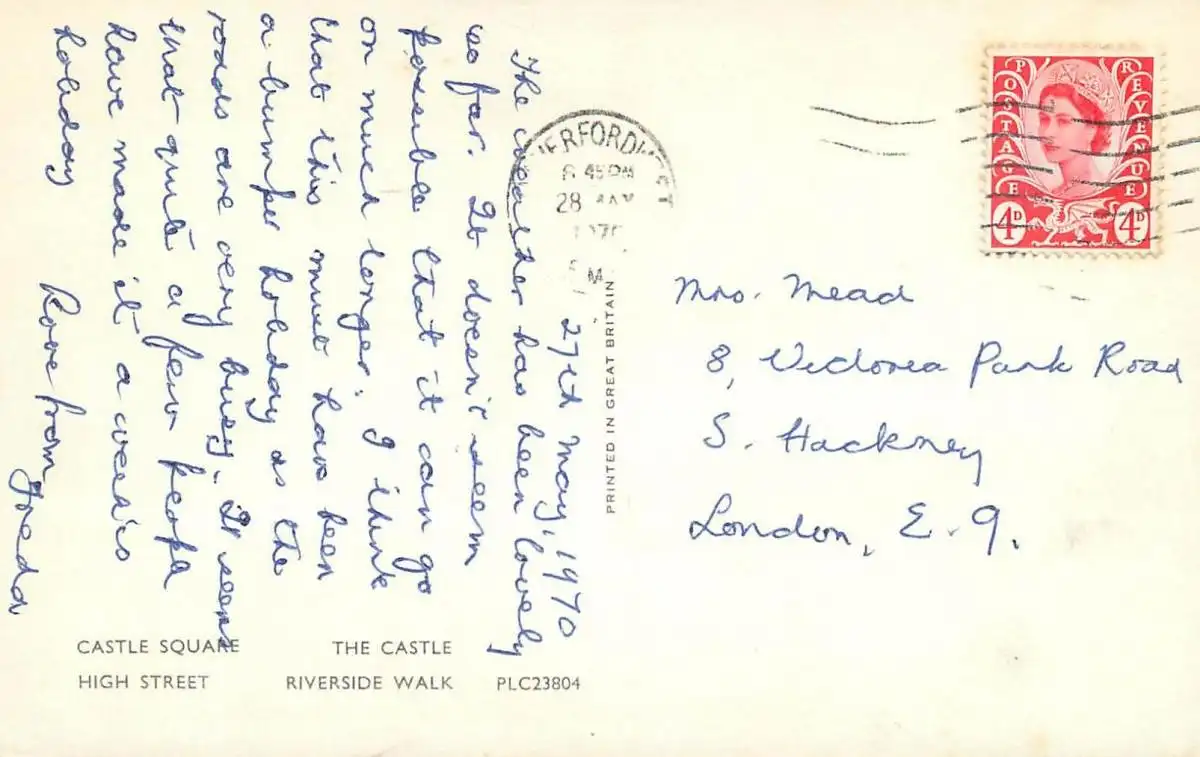 27th May, 1970
The weather has been lovely
so far. It doesn't seem
possible that it can go
on much longer. I think
that this must have been
a bumper holiday as the
roads are very busy. It seems
that quite a few people
have made it a week's
holiday
Love from Freda
Mrs. Mead
8, Victoria Park Road
S. Hackney
London, E.9.
PRINTED IN GREAT BRITAIN
CASTLE SQUARE THE CASTLE
HIGH STREET RIVERSIDE WALK PLC23804
POSTAGE REVENUE
4D 4D
ERFORDWEST
45 PM
28 MAY
1970